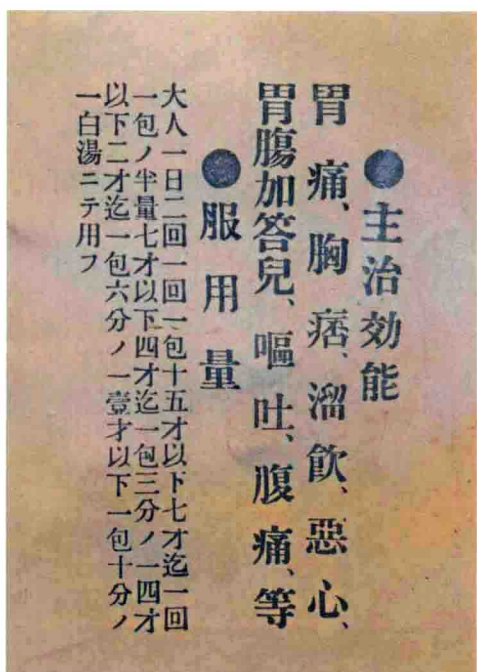 ●主治効能
胃痛、胸痞、溜飲、惡心、
胃腸加答兒、嘔吐、腹痛、等
●服用量
大人一日二回一回一包十五才以下七才迄一回
一包ノ半量七才以下四才迄一包三分ノ一四才
以下二才迄一包六分ノ一壹才以下一包十分ノ
一白湯ニテ用フ